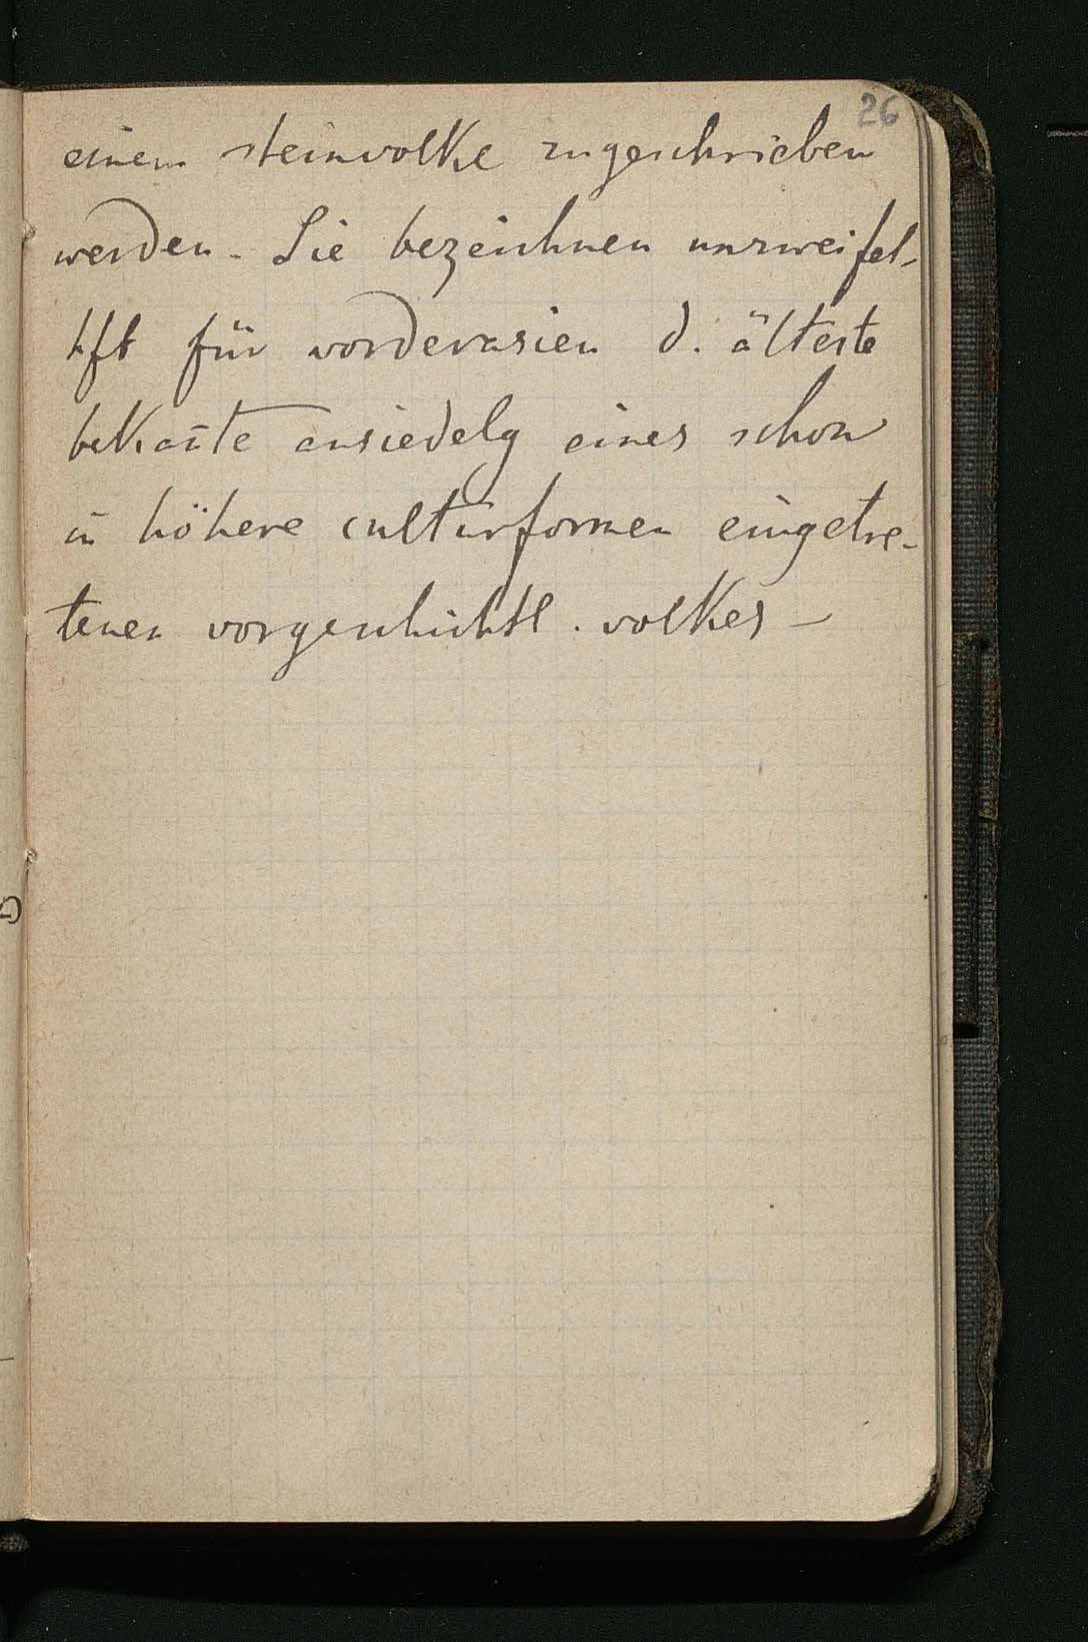 26
einem steinvolke zugeschrieben
werden. Sie bezeichnen unzweifel-
hft für vorderasien d. älteste
bekan̄te ansiedelg eines schon
in höhere culturformen eingetre-
tenen vorgeschichtl. volkes –